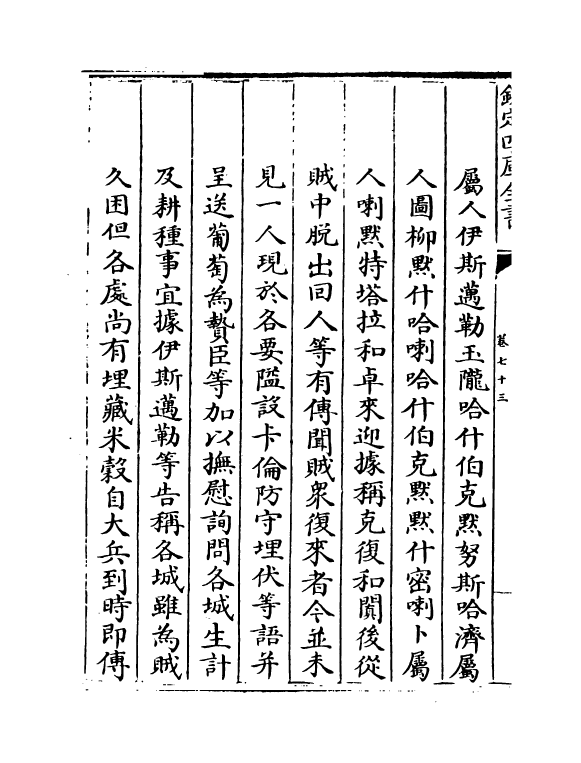 欽定四庫全書
卷七十三
屬人伊斯邁勒玉隴哈什伯克黙努斯哈濟屬
人圖柳黙什哈喇哈什伯克黙黙什密喇卜屬
人喇黙特塔拉和卓來迎據稱克復和闐後從
賊中脱出回人等有傳聞賊衆復來者今並未
見一人現於各要隘設卡倫防守埋伏等語并
呈送葡萄為贄臣等加以撫慰詢問各城生計
及耕種事宜據伊斯邁勒等告稱各城雖為賊
久困但各處尚有埋藏米穀自大兵到時即傳